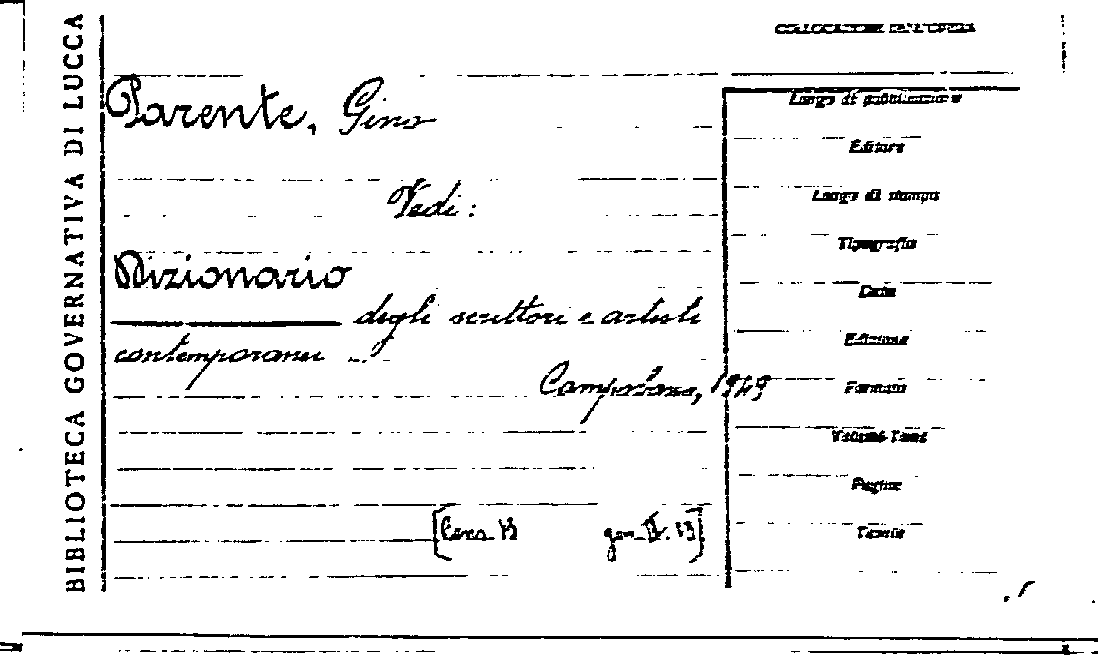 BIBLIOTECA GOVERNATIVA DI LUCCA
COLLOCAZIONE DELL'OPERA
Parente, Gino
Vedi:
Dizionario
degli scrittori e artisti
contemporanei ...
Campobasso, 1949
Luogo di pubblicazione
Editore
Luogo di stampa
Tipografia
Data
Edizione
Formato
Volume-Tomo
Pagine
Tavole